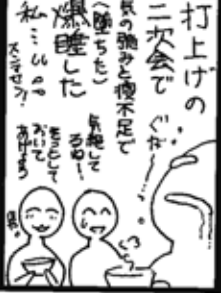 打上げの
二次会で
気の弛みと寝不足で
(堕ちた)
爆睡した
私…
スンマセン!!
ぐお〜
気絶して
るね…
そっとして
おいて
あげよう